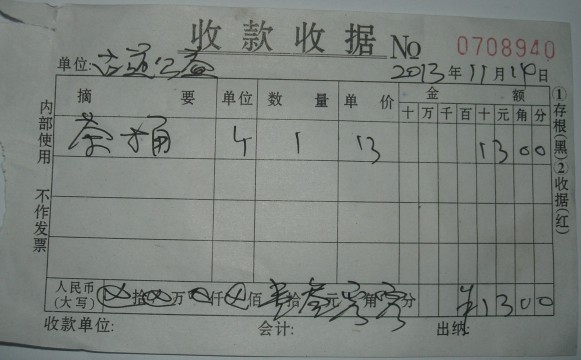 收款收据 No 0708940
单位: 2013年11月14日
摘要 单位 数量 单价 金额
十 万 千 百 十 元 角 分
茶桶 个 1 13 1 3 0 0
人民币(大写) 拾 万 仟 佰 壹拾叁元零角零分 ¥1300
收款单位: 会计: 出纳:
内部使用 不作发票
①存根(黑)②收据(红)